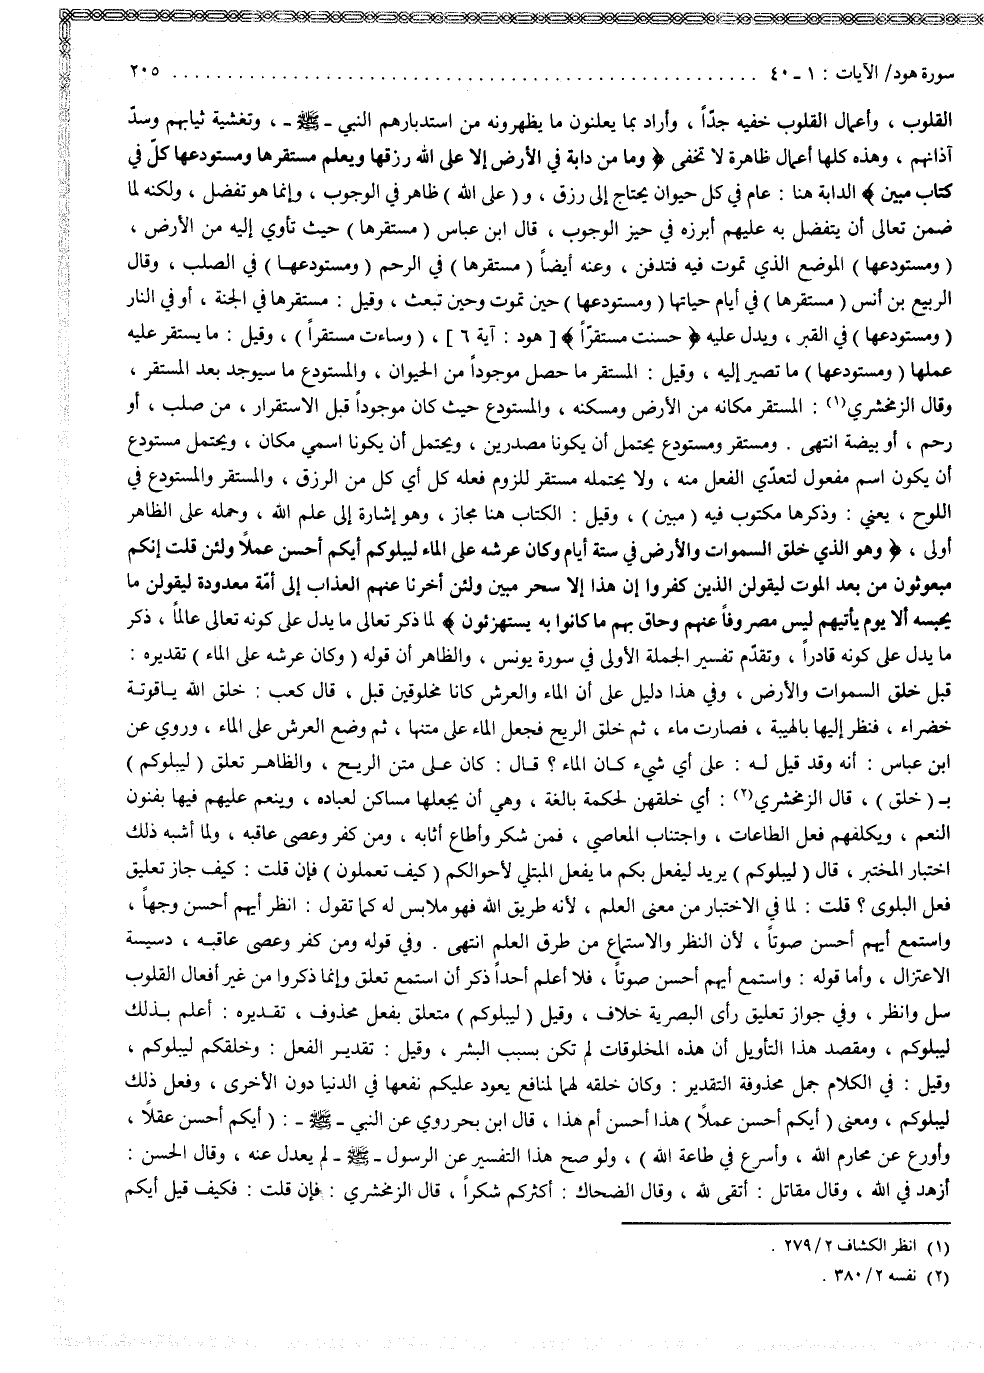 سورة هود/ الآيات : ١ ـ ٤٠ ........................................................ ٢٠٥
القلوب ، وأعمال القلوب خفيه جدّاً ، وأراد بما يعلنون ما يظهرونه من استدبارهم النبي ـ ﷺ ـ ، وتغشية ثيابهم وسدّ
آذانهم ، وهذه كلها أعمال ظاهرة لا تخفى ﴿ وما من دابة في الأرض إلا على الله رزقها ويعلم مستقرها ومستودعها كلّ في
كتاب مبين ﴾ الدابة هنا : عام في كل حيوان يحتاج إلى رزق ، و ( على الله ) ظاهر في الوجوب ، وإنما هو تفضل ، ولكنه لما
ضمن تعالى أن يتفضل به عليهم أبرزه في حيز الوجوب ، قال ابن عباس ( مستقرها ) حيث تأوي إليه من الأرض ،
( ومستودعها ) الموضع الذي تموت فيه فتدفن ، وعنه أيضاً ( مستقرها ) في الرحم ( ومستودعهـا ) في الصلب ، وقال
الربيع بن أنس ( مستقرها ) في أيام حياتها ( ومستودعها ) حين تموت وحين تبعث ، وقيل : مستقرها في الجنة ، أو في النار
( ومستودعها ) في القبر ، ويدل عليه ﴿ حسنت مستقرّاً ﴾ [ هود : آية ٦ ] ، ( وساءت مستقراً ) ، وقيل : ما يستقر عليه
عملها ( ومستودعها ) ما تصير إليه ، وقيل : المستقر ما حصل موجوداً من الحيوان ، والمستودع ما سيوجد بعد المستقر ،
وقال الزمخشري(١) : المستقر مكانه من الأرض ومسكنه ، والمستودع حيث كان موجوداً قبل الاستقرار ، من صلب ، أو
رحم ، أو بيضة انتهى . ومستقر ومستودع يحتمل أن يكونا مصدرين ، ويحتمل أن يكونا اسمي مكان ، ويحتمل مستودع
أن يكون اسم مفعول لتعدّي الفعل منه ، ولا يحتمله مستقر للزوم فعله كل أي كل من الرزق ، والمستقر والمستودع في
اللوح ، يعني : وذكرها مكتوب فيه ( مبين ) ، وقيل : الكتاب هنا مجاز ، وهو إشارة إلى علم الله ، وحمله على الظاهر
أولى ، ﴿ وهو الذي خلق السموات والأرض في ستة أيام وكان عرشه على الماء ليبلوكم أيكم أحسن عملاً ولئن قلت إنكم
مبعوثون من بعد الموت ليقولن الذين كفروا إن هذا إلا سحر مبين ولئن أخرنا عنهم العذاب إلى أمّة معدودة ليقولن ما
يحبسه ألا يوم يأتيهم ليس مصروفاً عنهم وحاق بهم ما كانوا به يستهزئون ﴾ لما ذكر تعالى ما يدل على كونه تعالى عالماً ، ذكر
ما يدل على كونه قادراً ، وتقدّم تفسير الجملة الأولى في سورة يونس ، والظاهر أن قوله ( وكان عرشه على الماء ) تقديره :
قبل خلق السموات والأرض ، وفي هذا دليل على أن الماء والعرش كانا مخلوقين قبل ، قال كعب : خلق الله يـاقوتـة
خضراء ، فنظر إليها بالهيبة ، فصارت ماء ، ثم خلق الريح فجعل الماء على متنها ، ثم وضع العرش على الماء ، وروي عن
ابن عباس : أنه وقد قيل لـه : على أي شيء كـان الماء ؟ قـال : كان عـلى متن الريـح ، والظاهـر تعلق ( ليبلوكم )
بـ ( خلق ) ، قال الزمخشري(٢) : أي خلقهن لحكمة بالغة ، وهي أن يجعلها مساكن لعباده ، وينعم عليهم فيها بفنون
النعم ، ويكلفهم فعل الطاعات ، واجتناب المعاصي ، فمن شكر وأطاع أثابه ، ومن كفر وعصى عاقبه ، ولما أشبه ذلك
اختبار المختبر ، قال ( ليبلوكم ) يريد ليفعل بكم ما يفعل المبتلي لأحوالكم ( كيف تعملون ) فإن قلت : كيف جاز تعليق
فعل البلوى ؟ قلت : لما في الاختبار من معنى العلم ، لأنه طريق الله فهو ملابس له كما تقول : انظر أيهم أحسن وجهاً ،
واستمع أيهم أحسن صوتاً ، لأن النظر والاستماع من طرق العلم انتهى . وفي قوله ومن كفر وعصى عاقبـه ، دسيسة
الاعتزال ، وأما قوله : واستمع أيهم أحسن صوتاً ، فلا أعلم أحداً ذكر أن استمع تعلق وإنما ذكروا من غير أفعال القلوب
سل وانظر ، وفي جواز تعليق رأى البصرية خلاف ، وقيل ( ليبلوكم ) متعلق بفعل محذوف ، تقـديره : أعلم بـذلك
ليبلوكم ، ومقصد هذا التأويل أن هذه المخلوقات لم تكن بسبب البشر ، وقيل : تقديـر الفعل : وخلقكم ليبلوكم ،
وقيل : في الكلام جمل محذوفة التقدير : وكان خلقه لهما لمنافع يعود عليكم نفعها في الدنيا دون الأخرى ، وفعل ذلك
ليبلوكم ، ومعنى ( أيكم أحسن عملاً ) هذا أحسن أم هذا ، قال ابن بحر روي عن النبي ـ ﷺ ـ : ( أيكم أحسن عقلاً ،
وأورع عن محارم الله ، وأسرع في طاعة الله ) ، ولو صح هذا التفسير عن الرسول ـ ﷺ ـ لم يعدل عنه ، وقال الحسن :
أزهد في الله ، وقال مقاتل : أتقى لله ، وقال الضحاك : أكثركم شكراً ، قال الزمخشري : فإن قلت : فكيف قيل أيكم
(١) انظر الكشاف ٢/ ٢٧٩ .
(٢) نفسه ٢/ ٣٨٠ .